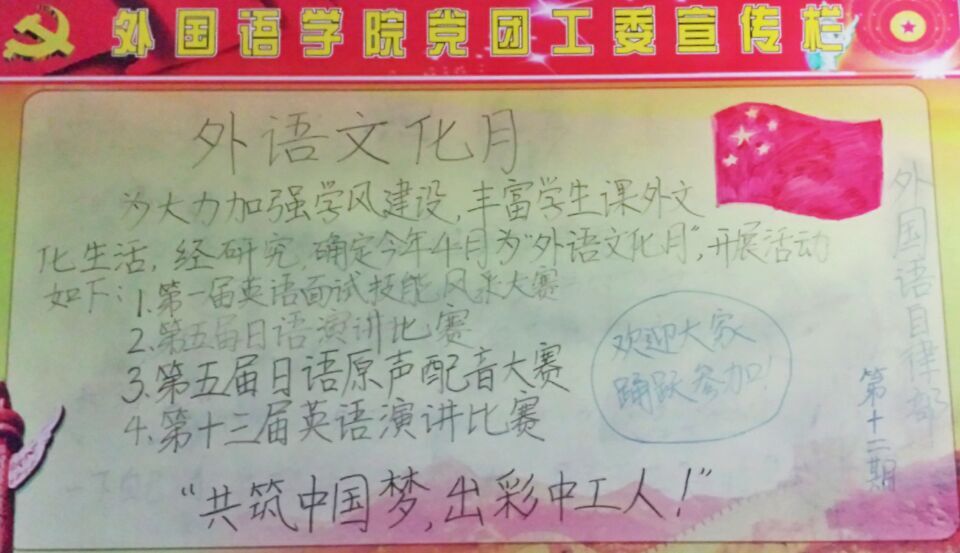 外国语学院党团工委宣传栏
外语文化月
为大力加强学风建设,丰富学生课外文
化生活,经研究,确定今年4月为"外语文化月",开展活动
如下:1.第一届英语面试技能风采大赛
2.第五届日语演讲比赛
3.第五届日语原声配音大赛
4.第十三届英语演讲比赛
欢迎大家
踊跃参加!
"共筑中国梦,出彩中工人!"
外国语自律部
第十二期